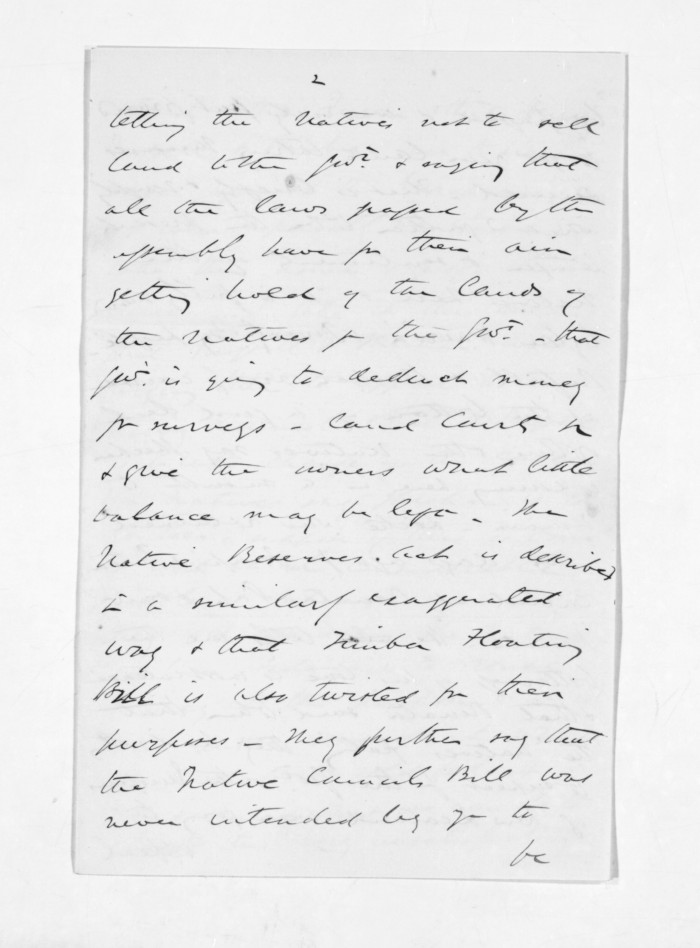 2
telling the Natives not to sell
land to the Govt. & saying that
all the laws passed by the
assembly have for their aim
getting hold of the lands of
the Natives for the Govt. - that
Govt. is going to deduct money
for surveys - Land Courts
& give the owners what little
balance may be left - The
Native Reserves Act is described
in a similarly exaggerated
way & that Timber Floating
Bill is also twisted for their
purposes - They further say that
the Native Councils Bill was
never intended by you to
be